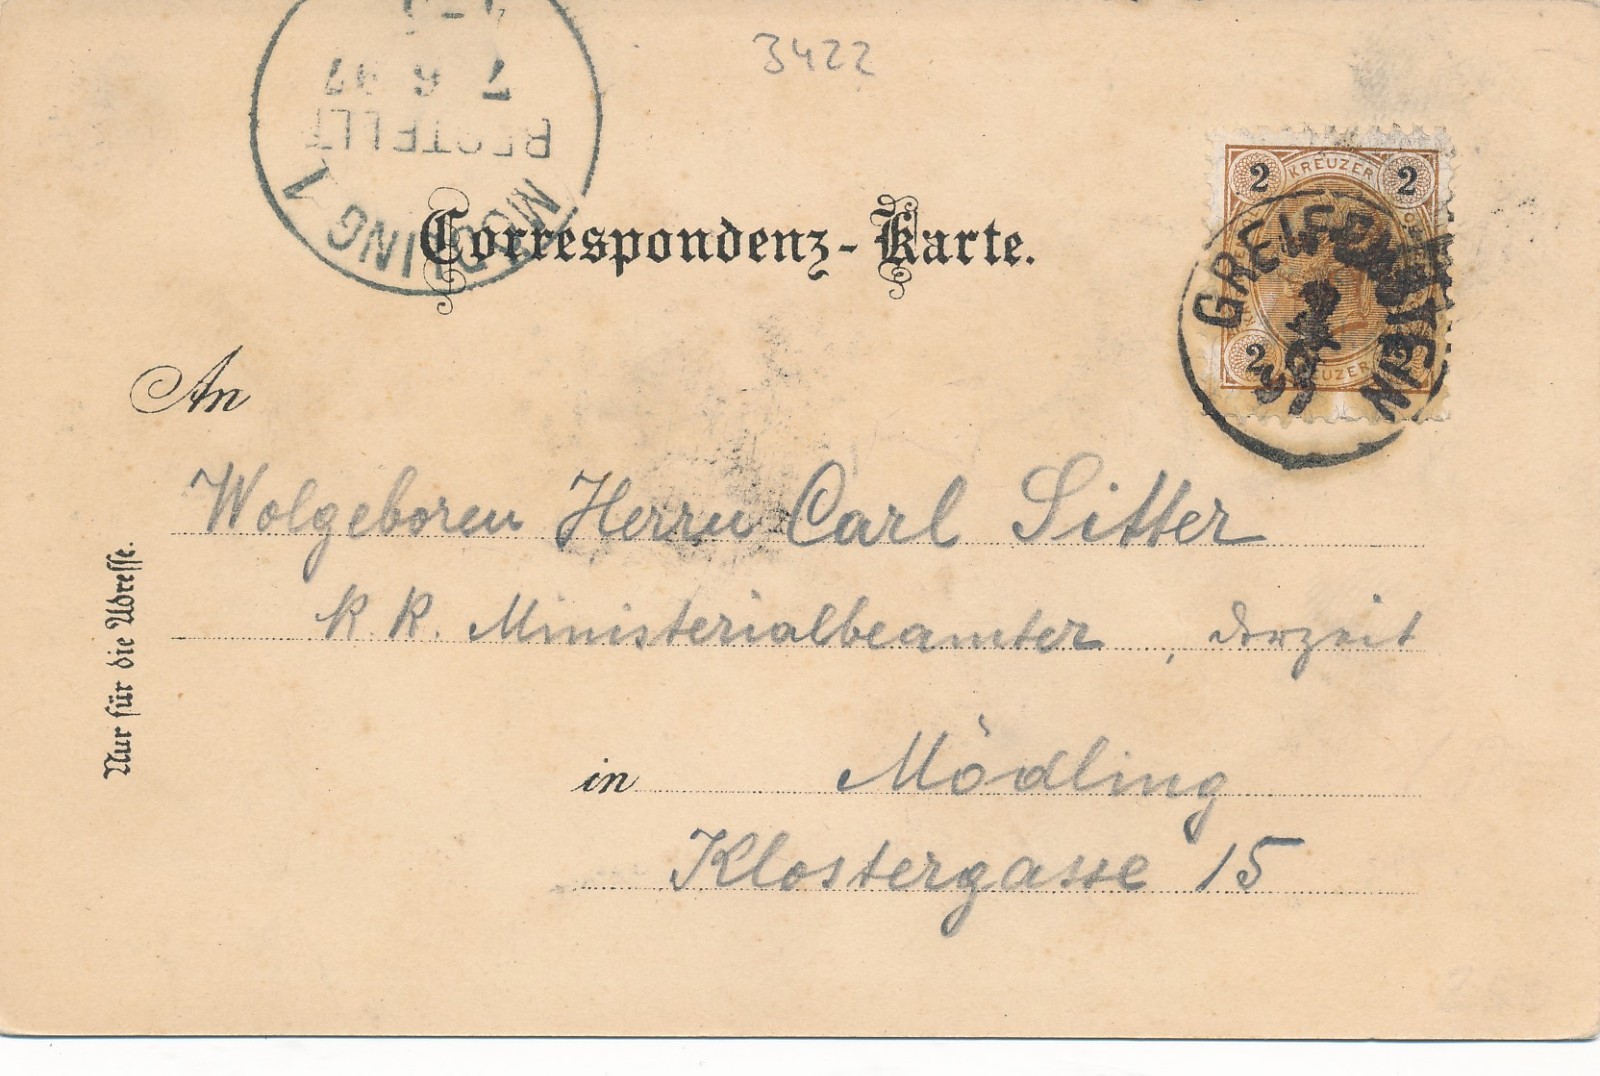 3422
MÖDLING 1
BESTELLT
7 6 97
KREUZER
2 2
2 2
KREUZER
GREIFENSTEIN
Correspondenz-Karte.
An
Wolgeboren Herrn Carl Sitter
k. k. Ministerialbeamter, derzeit
in Mödling
Klostergasse 15
Nur für die Adresse.